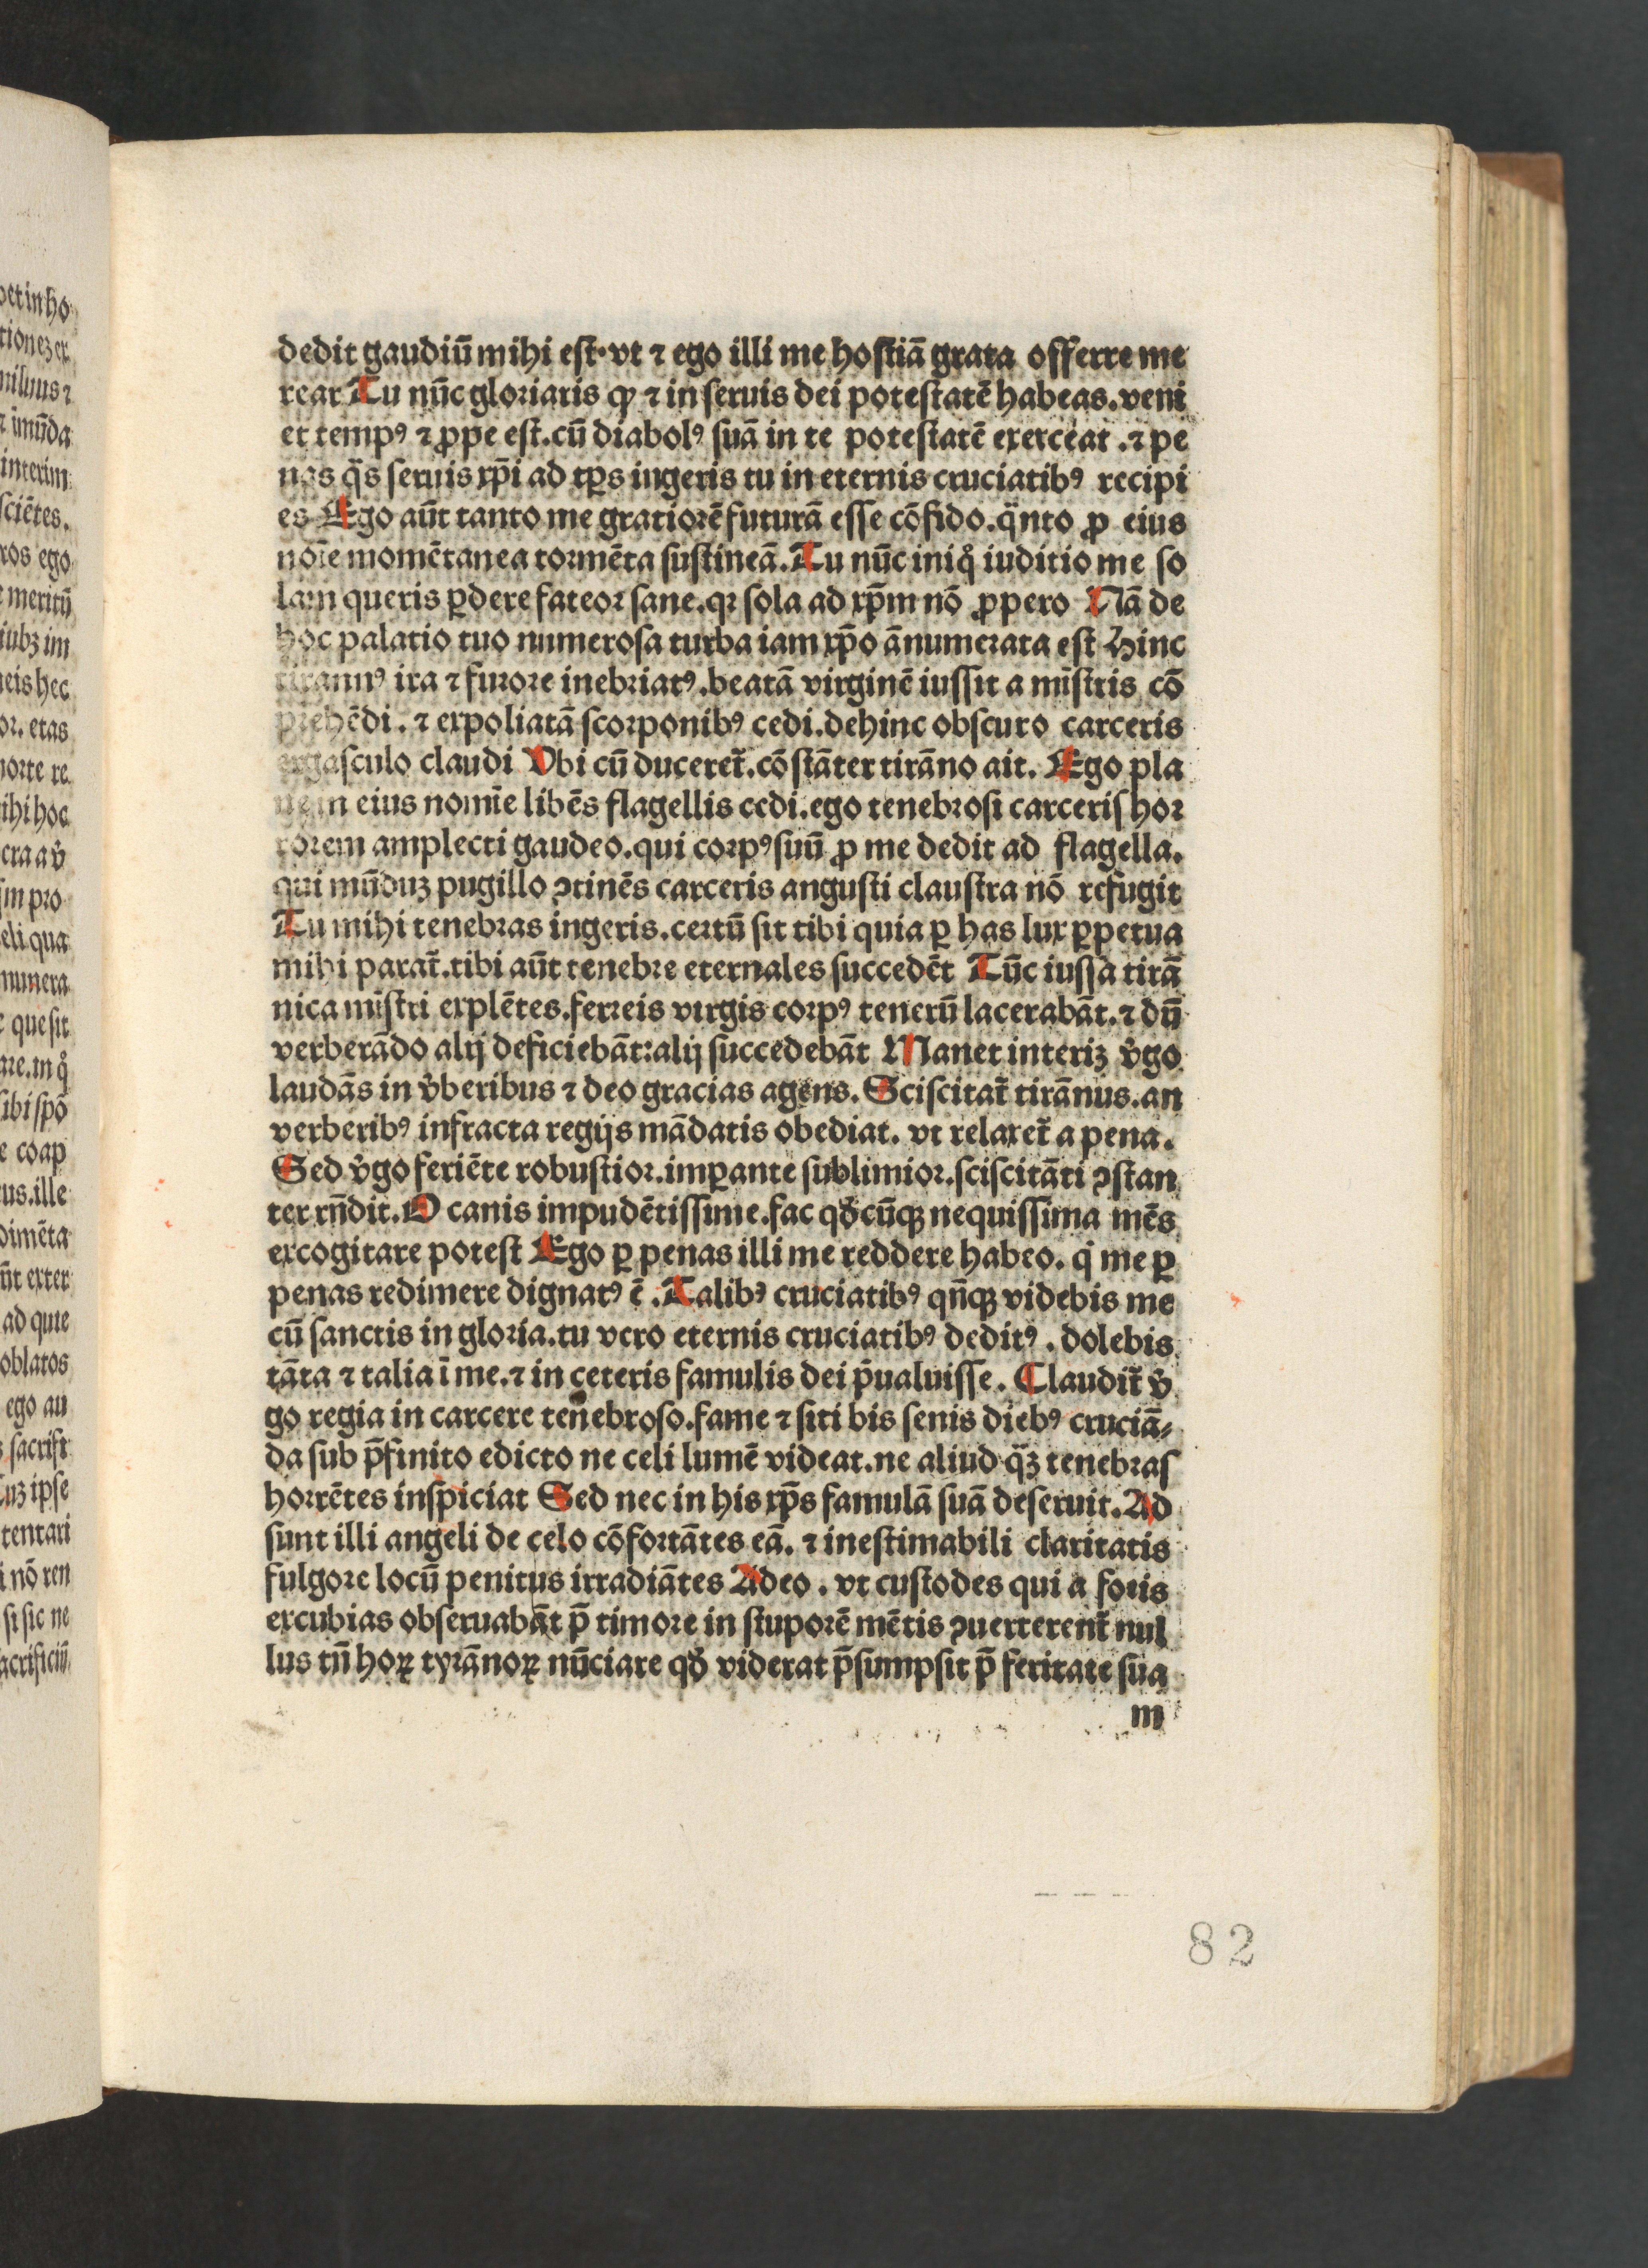 dedit gaudiū mihi est· vt ⁊ ego illi me hostiā grata offerre me
rear Tu nūc gloriaris ꝙ ⁊ in seruis dei potestatē habeas. veni
et tempꝰ ⁊ ꝓpe est. cū diabolꝰ suā in te potestatē exerceat . ⁊ pe
nas q̈s seruis xp̄i ad tp̄s ingeris tu in eternis cruciatibꝰ recipi
es Ego aūt tanto me gratiorē futurā esse cōfido. q̈nto ꝓ eius
noīe momētanea tormēta sustineā. Tu nūc iniqͦ iuditio me so
lam queris ꝑdere fateor sane. qꝛ sola ad xp̄m nō ꝓpero Nā de
hoc palatio tuo numerosa turba iam xp̄o ānumerata est Hinc
tirannꝰ ira ⁊ furore inebriatꝰ. beatā virginē iussit a mīstris cō
prehēdi. ⁊ expoliatā scorponibꝰ cedi. dehinc obscuro carceris
ergasculo claudi Vbi cū duceret̄. cōstāter tirāno ait. Ego pla
nem eius nomīe libēs flagellis cedi. ego tenebrosi carceris hor
rorem amplecti gaudeo. qui corpꝰ suū ꝓ me dedit ad flagella.
qui mūduꝫ pugillo ꝯtinēs carceris angusti claustra nō refugit
Tu mihi tenebras ingeris. certū sit tibi quia ꝑ has lux ꝑpetua
mihi parat̄. tibi aūt tenebre eternales succedēt Tūc iussa tirā
nica mīstri explētes. ferreis virgis corpꝰ tenerū lacerabāt. ⁊ dū
verberādo alij deficiebāt: alij succedebāt Manet interiꝫ v̄go
laudās in v̄beribus ⁊ deo gracias agens. Sciscitat̄ tirānus. an
verberibꝰ infracta regijs mādatis obediat. vt relaxet̄ a pena.
Sed v̄go feriēte robustior. imꝑante sublimior. sciscitāti ꝯstan
ter rn̄dit. O canis impudētissime. fac qđcūqꝫ nequissima mēs
excogitare potest Ego ꝑ penas illi me reddere habeo. qͥ me ꝑ
penas redimere dignatꝰ ē . Talibꝰ cruciatibꝰ qn̄qꝫ videbis me
cū sanctis in gloria. tu vero eternis cruciatibꝰ deditꝰ . dolebis
tāta ⁊ talia ī me. ⁊ in ceteris famulis dei p̄ualuisse. Claudit̄ v̄
go regia in carcere tenebroso. fame ⁊ siti bis senis diebꝰ cruciā⸗
da sub p̄finito edicto ne celi lumē videat. ne aliud q̈ꝫ tenebras
horrētes inspiciat Sed nec in his xp̄s famulā suā deseruit. Ad
sunt illi angeli de celo cōfortātes eā. ⁊ inestimabili claritatis
fulgore locū penitus irradiātes Adeo . vt custodes qui a foris
excubias obseruabāt p̄ timore in stuporē mētis ꝯuerterent̄ nul
lus tn̄ hoꝝ tyrānoꝝ nūciare qđ viderat p̄sumpsit p̄ feritate sua
m
82